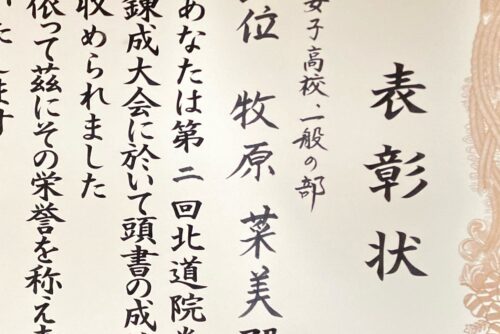 表彰状
女子高校、一般の部
位 牧原 菜美
あなたは第二回北道院
錬成大会に於いて頭書の成
収められました
依って茲にその栄誉を称えま
します